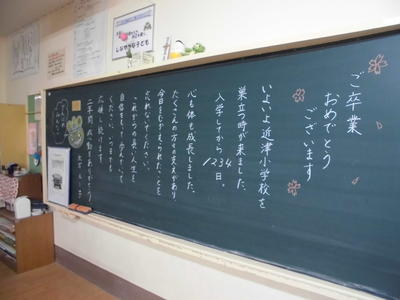 ご卒業
おめでとう
ございます
いよいよ近津小学校を
巣立つ時が来ました。
入学してから1234日。
心も体も成長しました。
たくさんの方々の支えがあり
今日をむかえられたことを
忘れないでください。
これからの長い人生を
自信をもって歩んでいって
ください。いつまでも
応援し続けます。
二年間、感動をありがとう